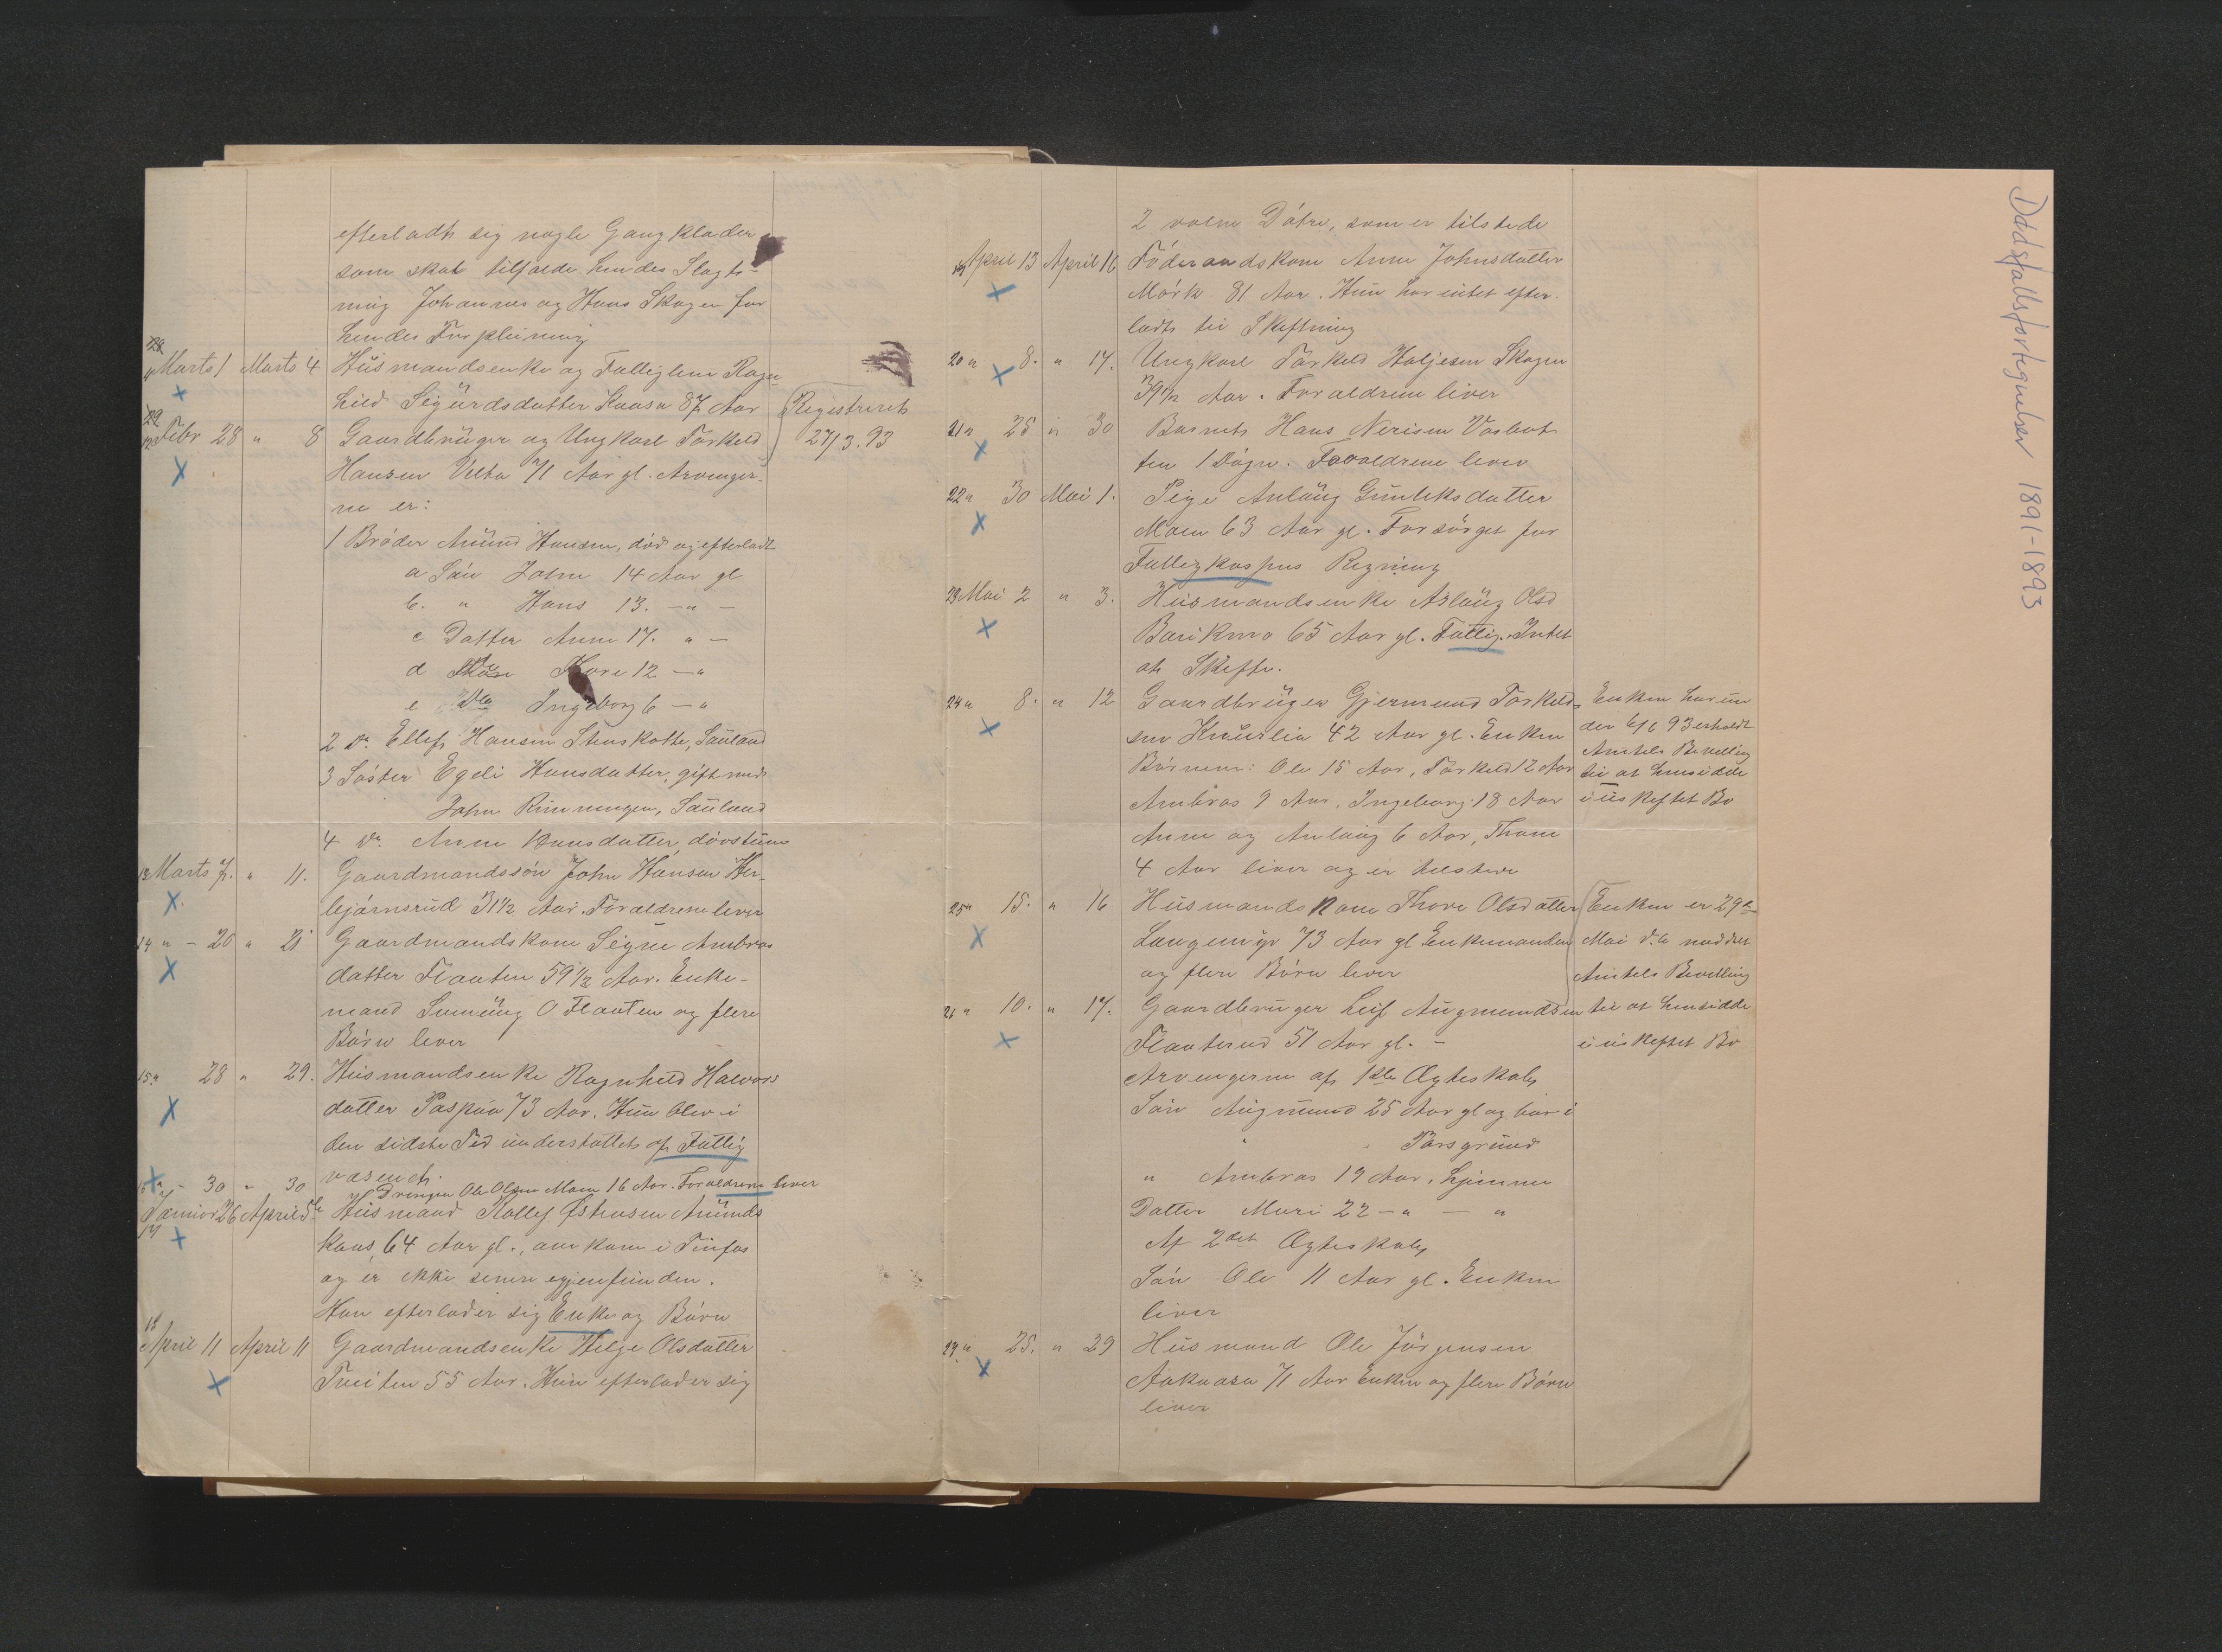 efterladt sig nogle Gangklæder
som skal tilfalde hendes Slagt-
ning Johannes og Hans Skogen for
hendes Forpleining
11 Marts 1 Marts 4 Husmandsenke og Fattiglem Ragn-
hild Sigurdsdatter Kaasa 87 Aar
12 Febr 28 " 8 Gaardbruger og Ungkarl Torkeld
Registreret
27/3.93
Hansen Velta 71 Aar gl. Arvinger-
ne er:
1 Bróder Amund Hansen, död og efterladt
a Són John 14 Aar gl
b. " Hans 13. - " -
c Datter Anne 17. " -
d Tore 12 - "
e Do Ingeborg 6 - "
2 Do. Ellef Hansen Stenskotte, Sauland
3 Sóster Egeli Hansdatter, gift med
John Rinningen, Sauland
4 Do. Anne Hansdatter, dövstum
13 Marts 7. " 11. Gaardmandssón John Hansen Her-
bjórnsrud 31 1/2 Aar. Foraldrene lever
14 " - 20 " 21 Gaardmandskone Signe Ambros
datter Flaaten 59 1/2 Aar. Enke-
mand O Flaaten og flere
Bórn lever
15 " 28 " 29. Husmandsenke Ragnhild Halvors
datter Paspaa 73 Aar. Hun blev i
den sidste Tid understøttet af Fattig
væsenet.
16 " - 30 " 30 Drengen Ole Olsen Moen 16 Aar. Foraldrene lever
17 Januar 26 April 5te Husmand Kollef Østensen Amunds
kaas, 64 Aar gl., omkom i Tinfos
og er ikke senere igjenfunden.
Han efterlader sig Enke og Bórn
18 April 11 April 11 Gaardmandsenke Helge Olsdatter
Tveiten 55 Aar. Hun efterlader sig
2 voxne Dótre, som er tilstede
19 April 13 April 16 Fóderaadskone Anne Johnsdatter
Mórk 81 Aar. Hun har intet efter-
ladt til Skiftning
20 " 8. " 17. Ungkarl Torkeld Haljesen Skogen
39 1/2 Aar. Foraldrene lever
21 " 25 " 30 Barnet Hans Nerisen Vasbot
ten 1 Dógn. Foraldrene lever
22 " 30 Mai 1. Pige Anlaug Gunleksdatter
Moen 63 Aar gl. Forsórget for
Fattigkassens Regning
23 Mai 2 " 3. Husmandsenke Aslaug Olsd
Barikmo 65 Aar gl. Fattig. Intet
at Skifte.
24 " 8. " 12 Gaardbruger Gjermund Torkeld-
sen Knurlia 42 Aar gl. Enken
Bórnene: Ole 15 Aar, Torkeld 12 Aar
Ambros 9 Aar, Ingeborg 18 Aar
Anne og Anlaug 6 Aar, Thone
4 Aar lever og er tilstede
Enken har un
der 6/6 93 erholdt
Amtets Bevilling
til at hensidde
i uskiftet Bo
25 " 15. " 16 Husmandskone Thore Olsdatter
Langemyr 73 Aar gl Enkemanden
og flere Bórn lever
Enken er 29de
Mai d.A. meddelt
Amtets Bevilling
til at hensidde
i uskiftet Bo
26 " 10. " 17. Gaardbruger Leif Augmundsen
Flaaterud 51 Aar gl. -
Arvingerne af 1ste Ægteskab
Són Augmund 25 Aar gl og bor i
Porsgrund
" Ambros 19 Aar, hjemme
Datter Mari 22 - " - "
Af 2det Ægteskab
Són Ole 11 Aar gl. Enken
lever
27 " 25. " 29 Husmand Ole Jórgensen
Aakaasa 71 Aar Enken og flere Bórn
lever
Dødsfallsfortegnelser 1891-1893